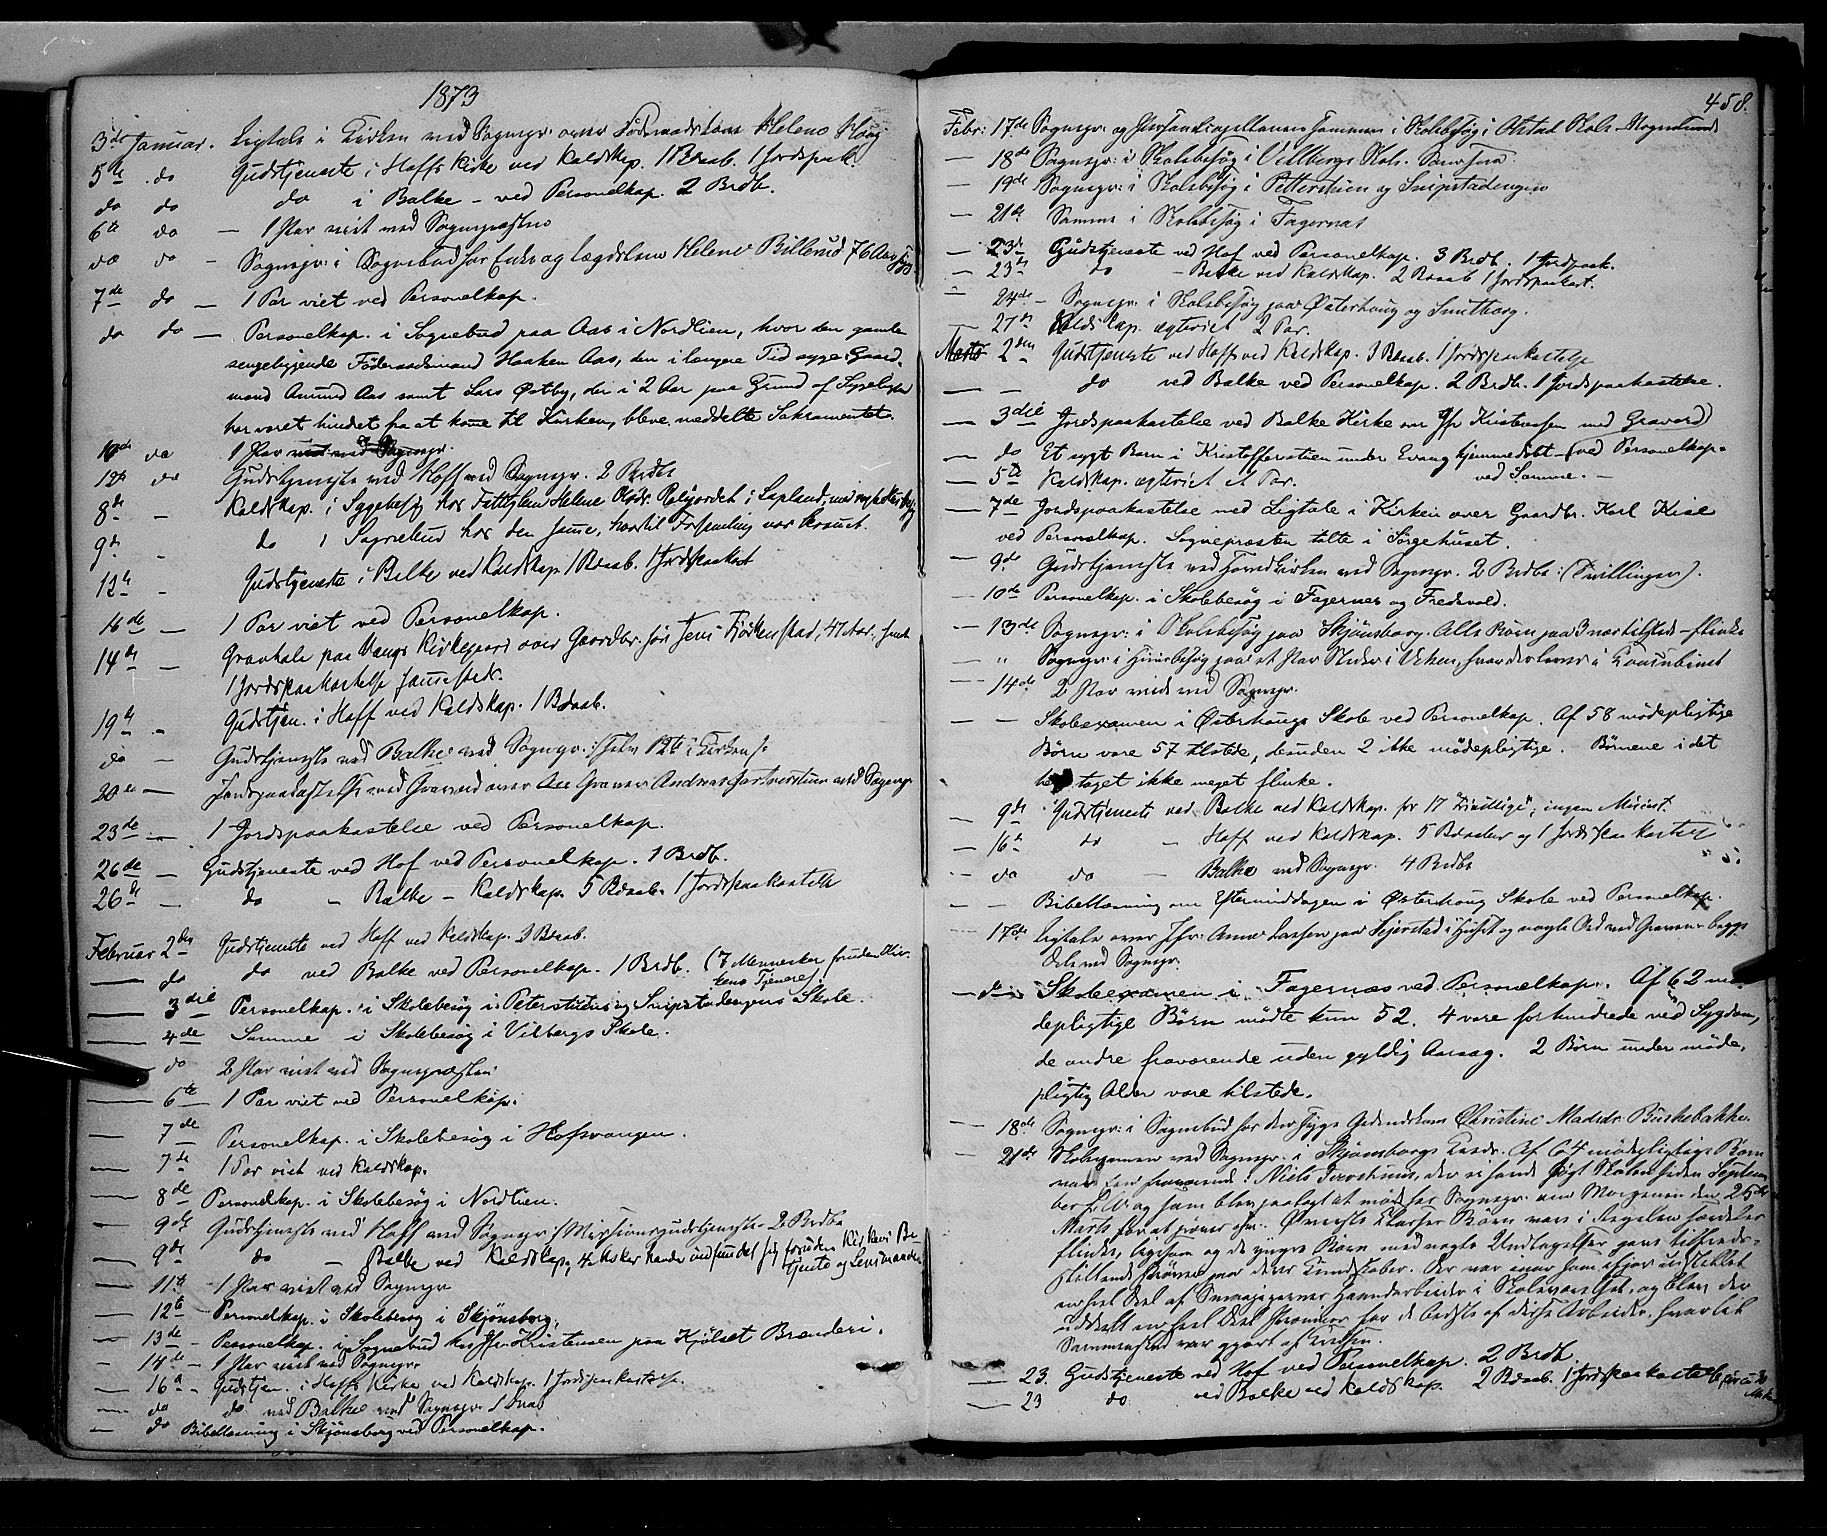 1873
3die Januar. Ligtale i Kirken ved Sognepr. over Føderaadskone Helene Haug
5te do Gudstjeneste i Hoffs Kirke ved Kaldskap. 1 Barnb. 1 Jordpaak.
do do do i Balke – ved Personelkap. 2 Brdb.
6te do – 1 Par viet ved Sognepræsten
do do – Sognepr: i Sognebud hos Enke og Lægdslem Helene Billerud 76 Aar
7de do – 1 Par viet ved Personelkap.
do do – Personelkap. i Sognebud paa Aas i Nordlien, hvor den gamle
sengeliggende Føderaadsmand Haaken Aas, den i længere Tid syge Gaard-
mand Amund Aas samt Lars Østby, der i 2 Aar paa Grund af Sygelighed
har været hindret fra at komme til Kirken, bleve meddelte Sakramentet.
do 1 Par viet ved Sognepr.
12te do Gudstjeneste ved Hoff ved Sognepr. 2 Brdb
8de – Kaldskap. i Sygebesøg hos Fattiglem Helene Olsdr. i Lapland,
9de – do i Sognebud hos den samme, hvortil Forsamling var kommet.
12te – Gudstjeneste i Balke ved Kaldskap. 1 Barnb. 1 Jordpaakast
16de – 1 Par viet ved Personelkap.
14de – Gravtale paa Vangs Kirkegaard over Gaardbr. Jens 47 Aar,
1 Jordpaakastelse sammested.
19de – Gudstjen. i Hoff ved Kaldskap. 1 Barnb.
do – Gudstjeneste ved Balke ved Sognepr.
20de – Jordpaakastelse ved Graven over Andreas ved Sognepr
23de – 1 Jordspaakastelse ved Personelkap.
26de – Gudstjeneste ved Hof ved Personelkap. 1 Brdb.
26de – do – Balke – Kaldskap. 5 Barnb. 1 Jordpaakastelse
Februar 2den Gudstjeneste ved Hoff ved Kaldskap. 3 Barnb.
do do ved Balke ved Personelkap. 1 Brdb. (7 Mennesker foruden Kir-
kens Tjenere)
3die Personelkap. i Skolebesøg i Peterstuen og Snipstadengens Skole.
4de Samme i Skolebesøg i Vilbergs Skole.
do 2 Par viet ved Sognepræsten
6te – 1 Par viet ved Personelkap.
7de – Personelkap. i Skolebesøg i Hofsvangen.
7de – 1 Par viet ved Kaldskap.
8de Personelkap. i Skolebesøg i Nordlien.
9de Gudstjeneste ved Hoff ved Sognepr. Missionsgudstjeneste – 2 Brdb
9de do – Balke ved Kaldskap; 4 havde indfundet sig foruden Kirkens Be-
tjente og Lensmanden
11te – 1 Par viet ved Sognepr
12te Personelkap. i Skolebesøg i Skjønsborg.
13de – Personelkap. i Sognebud hos Kristensen paa Kjølset Brænderi.
14de – 1 Par viet ved Sognepr
16de – Gudstjen. i Hoffs Kirke ved Kaldskap. 1 Jordpaakastelse.
do do ved Balke ved Sognepr.
do Bibellæsning i Skjønsborg ved Personelkap.
458.
Febr: 17de Sognepr. og Personelkapellanen sammen i Skolebesøg i Skole
– 18de Sognepr: i Skolebesøg i Villbergs Skole.
– 19de Sognepr: i Skolebesøg i Petterstuen og Snipstadengen
– 21de Samme i Skolebesøg i Fagernæs
– 23de Gudstjeneste ved Hof ved Personelkap. 3 Brdb. 1 Jordpaak.
– 23de do – Balke ved Kaldskap. 2 Barnb 1 Jordpaakast.
– 24de – Sognepr: i Skolebesøg paa Østerhaug og
– 27de Kaldskap. ægteviet 2 Par.
Marts 2den Gudstjeneste ved Hoff ved Kaldskap. 3 Barnb. 1 Jordspaakastelse
– – do ved Balke ved Personelkap. 2 Brdb. 1 Jordspaakastelse.
– 3die Jordspaakastelse ved Balke Kirke over Kristensen med Gravord
– do Et sygt Barn i Kristofferstuen under Evang hjemmedøbt – (ved Personelkap.
– 5te Kaldskap. ægteviet et Par. ved Samme. –
– 7de Jordspaakastelse med Ligtale i Kirken over Gaardbr. Karl Kise
ved Personelkap. Sognepræsten talte i Sørgehuset.
– 9de Gudstjeneste ved Hovedkirken ved Sognepr. 2 Brdb: (Tvillinger).
– 10de Personelkap. i Skolebesøg i Fagernes og Fredsvold.
– 13de Sognepr: i Skolebesøg paa Skjønsborg. Alle Børn paa 3 nær tilstede – flinke
– " Sognepr: i
– 14de 2 Par viet ved Sognepr.
– – Skoleexamen i Østerhaugs Skole ved Personelkap. Af 58 mødepligtige
Børn vare 57 tilstede, desuden 2 ikke mødepligtige. Børnene i det
Hele taget ikke meget flinke.
– 9de Gudstjeneste ved Balke ved Kaldskap. for 17 "frivillige"; ingen
– 16de do – Hoff ved Kaldskap. 5 Barneb og 1 Jordspaakastelse
– do do – Balke ved Sognepr. 4 Brdb
– – Bibellæsning om Eftermiddagen i Østerhaug Skole ved Personelkap.
17de Ligtale over Anne Larsen paa Sejerstad i Huset og nogle Ord ved Graven – begge
Dele ved Sognepr.
– do Skoleexamen i Fagernæs ved Personelkap. Af 62 mø-
depligtige Børn mødte kun 52. 4 vare forhindrede ved Sygdom,
de andre fraværende uden gyldig Aarsag. 2 Børn under møde-
pligtig Alder vare tilstede.
– 18de Sognepr: i Sognebud hos den syge Christine Madsdr. Buskebakke.
– 21de Skoleexamen ved Sognepr. i Skjønsborgs Kreds. Af 64 mødepligtige Børn
var een fraværende: Niels der ei havde søgt Skolen siden Septem-
ber og som blev paalagt at møde hos Sognepr. om Morgenen den 25de
Marts for at prøves. Øverste Klasses Børn vare i Regelen særdeles
flinke, ligesom og de yngre Børn med nogle Undtagelser gave tilfreds-
stillende Prøver paa deres Kundskaber. Der var som ifjor udstillet
en heel Del af Smaapigernes Haandarbeider i Skoleværelset, og blev der
uddeelt en heel Deel Præmier for de bedste af disse Arbeider, hvortil
Sammenskud var gjort af Kredsen.
– 23. Gudstjeneste ved Hof ved Personelkap. 2 Brdb.
– 23 do ved Balke ved Kaldskap. 2 Barnb. 1 Jordspaakastelse